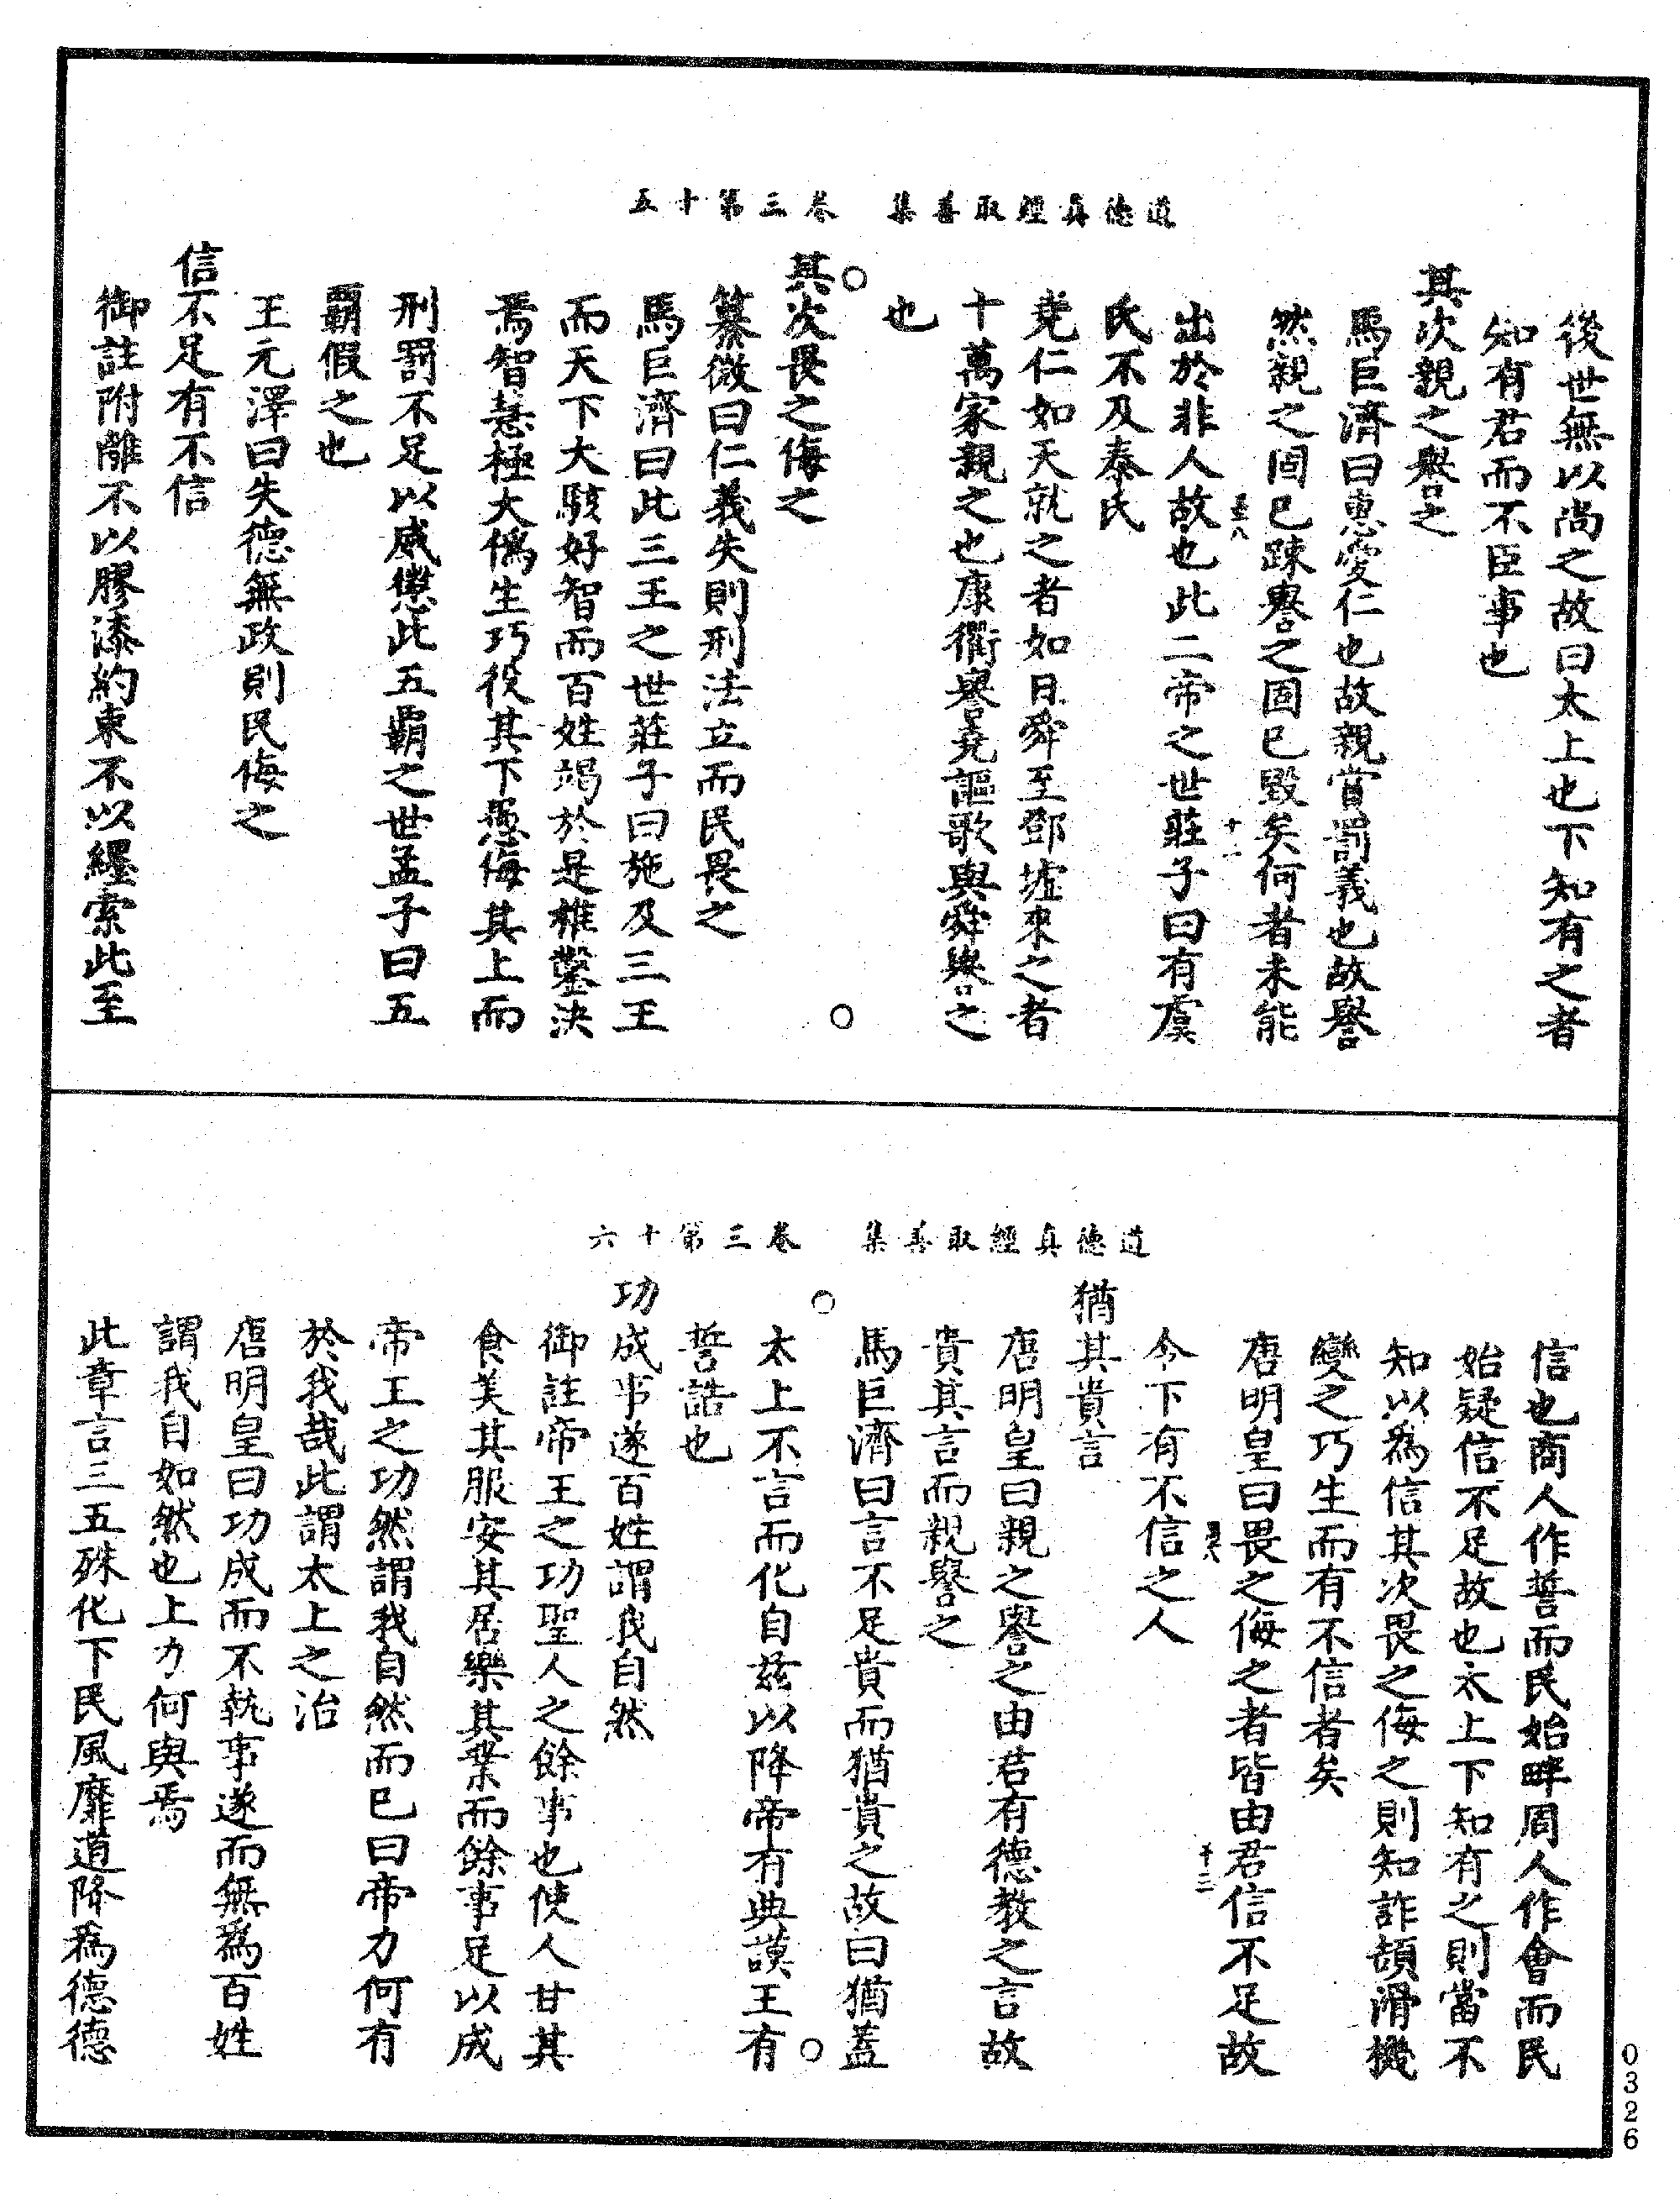 道德真經取善集　卷三第十五
後世無以尚之故曰太上也下知有之者
知有君而不臣事也
其次親之譽之
馬巨濟曰惠愛仁也故親賞罰義也故譽
然親之固已疎譽之固已毀矣何者未能
十一
出於非人故也此二帝之世莊子曰有虞
氏不及泰氏
堯仁如天就之者如日舜至鄧墟來之者
十萬家親之也康衢譽堯謳歌與舜譽之
也
其次畏之侮之
纂微曰仁義失則刑法立而民畏之
馬巨濟曰此三王之世莊子曰施及三王
而天下大駭好智而百姓竭於是椎鑿決
焉智慧極大僞生巧役其下愚侮其上而
刑罰不足以威懲此五霸之世孟子曰五
霸假之也
王元澤曰失德無政則民侮之
信不足有不信
御註附離不以膠漆約束不以纆索此至
道德真經取善集　卷三第十六
信也商人作誓而民始畔周人作會而民
始疑信不足故也太上下知有之則當不
知以爲信其次畏之侮之則知詐頡滑機
變之巧生而有不信者矣
唐明皇曰畏之侮之者皆由君信不足故
十二
令下有不信之人
猶其貴言
唐明皇曰親之譽之由君有德教之言故
貴其言而親譽之
馬巨濟曰言不足貴而猶貴之故曰猶蓋
太上不言而化自茲以降帝有典謨王有
誓誥也
功成事遂百姓謂我自然
御註帝王之功聖人之餘事也使人甘其
食美其服安其居樂其業而餘事足以成
帝王之功然謂我自然而已曰帝力何有
於我哉此謂太上之治
唐明皇曰功成而不執事遂而無爲百姓
謂我自如然也上力何與焉
此章言三五殊化下民風靡道降爲德德
0326